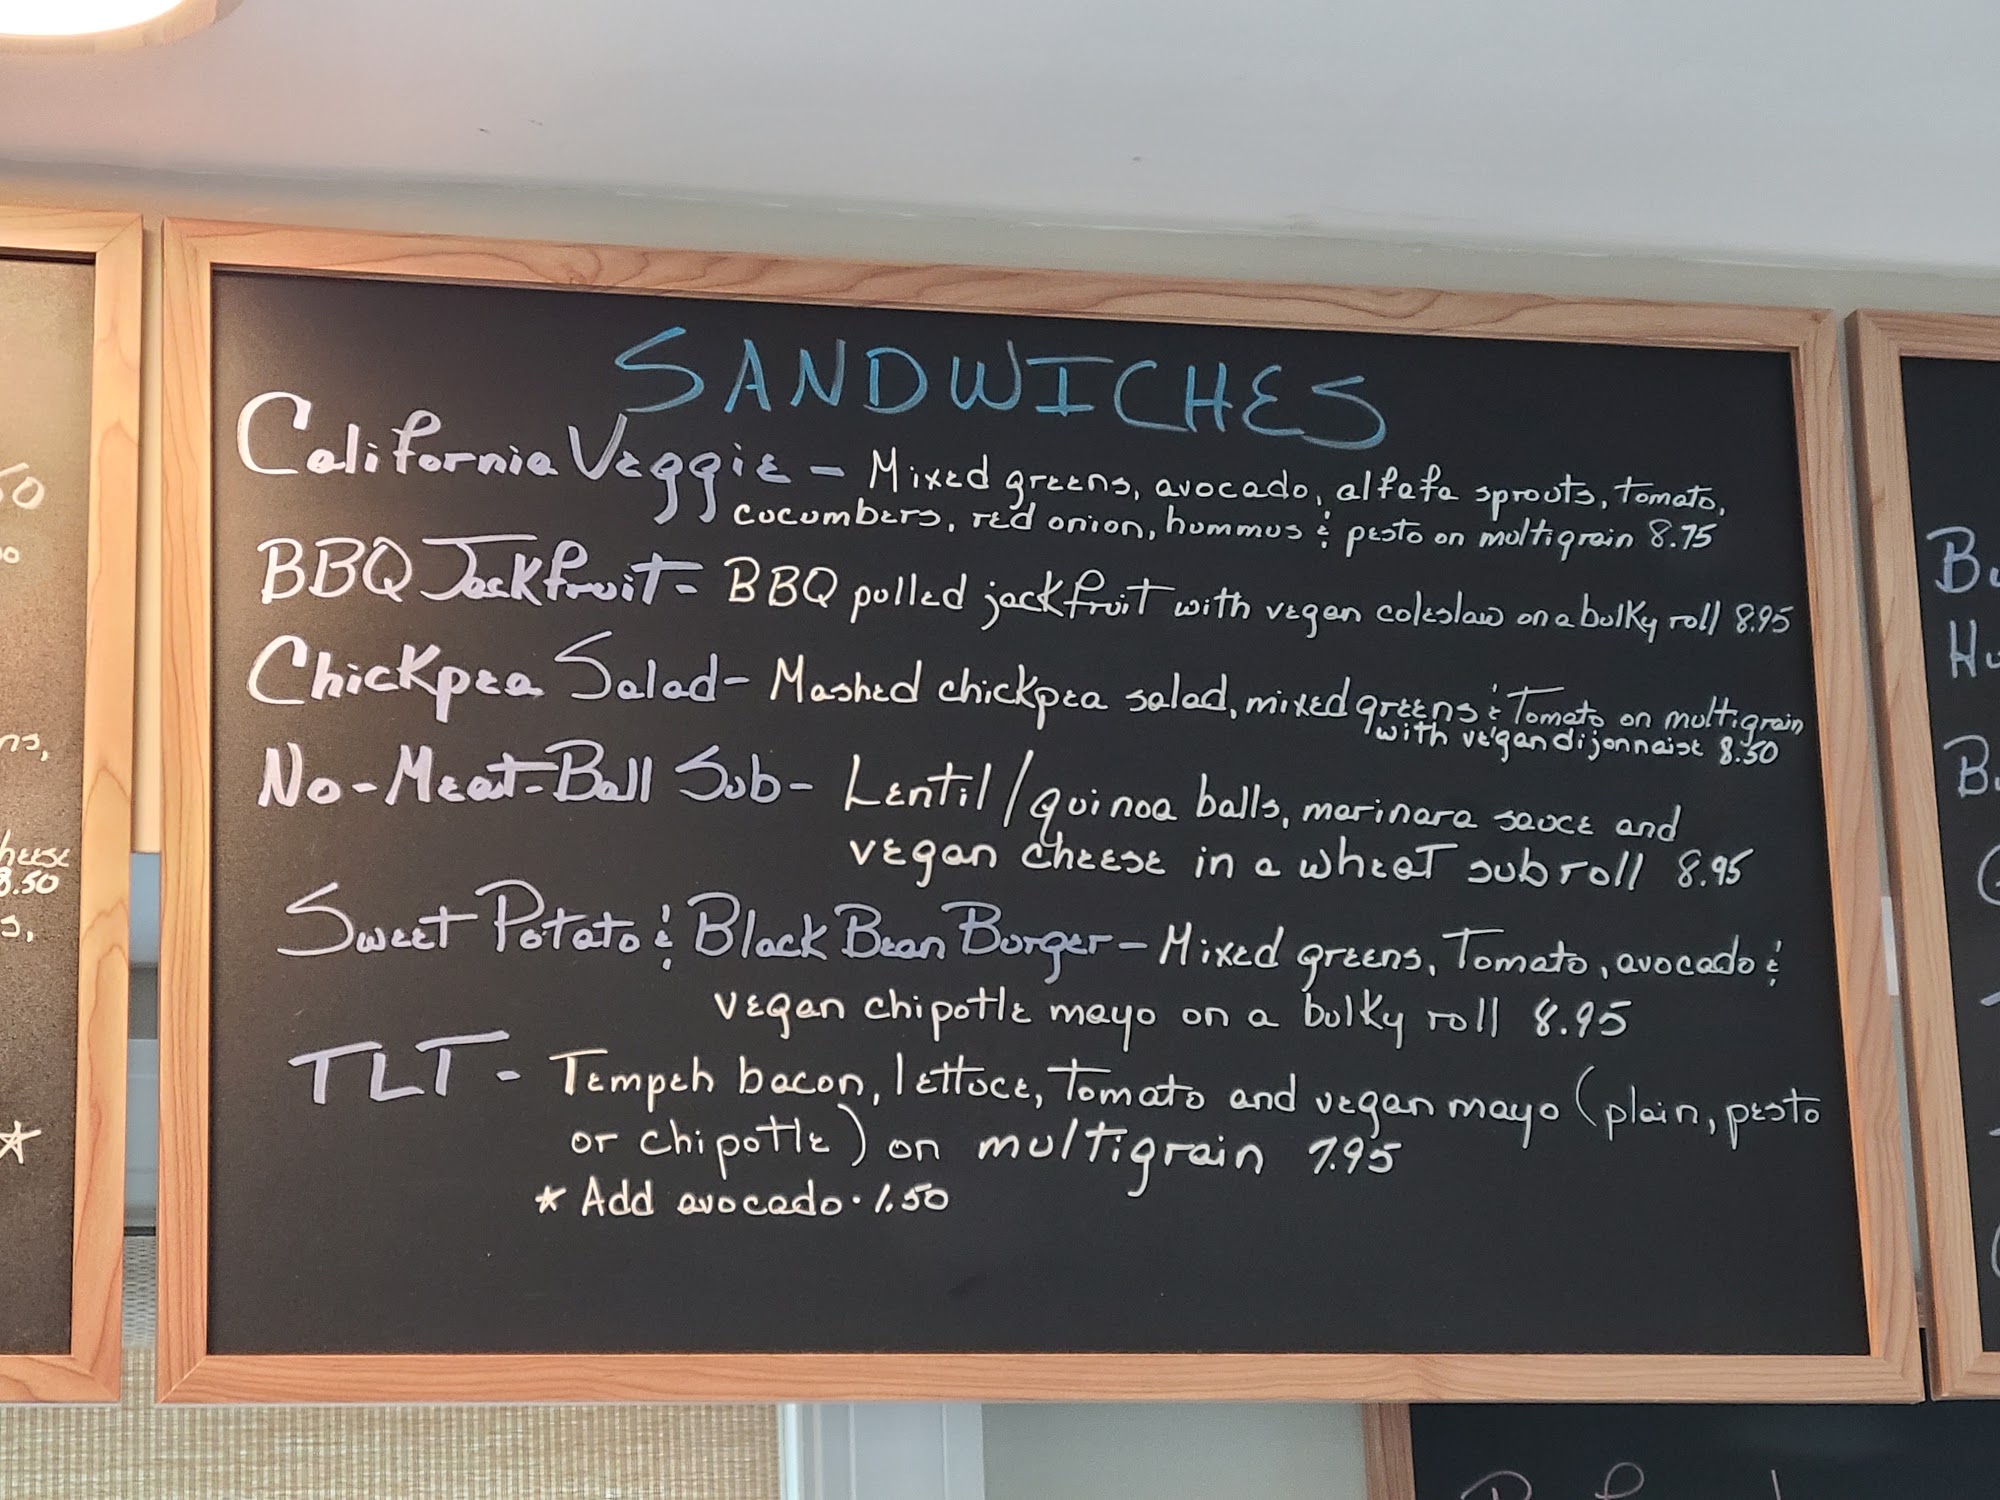 SANDWICHES
California Veggie - Mixed greens, avocado, alfafa sprouts, tomato,
cucumbers, red onion, hummus & pesto on multigrain 8.75
BBQ Jackfruit - BBQ pulled jackfruit with vegan coleslaw on a bulky roll 8.95
Chickpea Salad - Mashed chickpea salad, mixed greens & Tomato on multigrain
with vegan dijonnaise 8.50
No-Meat-Ball Sub - Lentil/quinoa balls, marinara sauce and
vegan cheese in a wheat sub roll 8.95
Sweet Potato & Black Bean Burger - Mixed greens, Tomato, avocado &
vegan chipotle mayo on a bulky roll 8.95
TLT - Tempeh bacon, lettuce, tomato and vegan mayo (plain, pesto
or chipotle) on multigrain 7.95
* Add avocado · 1.50
heese
8.50